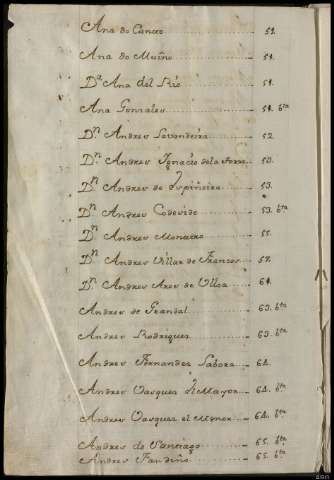 Ana do Canc̃o ..... 51.
Ana do Muĩno ..... 51.
D.ª Ana del Rio ..... 51.
Ana Gonzales ..... 51. bta
D.n Andres ..... 52.
D.n Andres Ignacio de la Torre ..... 53.
D.n Andres de Espiñeira ..... 53.
D.n Andres Codevide ..... 53. bta
D.n Andres Monteiro ..... 55.
D.n Andres Villar de Frances ..... 57.
D.n Andres Ares de Ulloa ..... 61.
Andres de Grandal ..... 63. bta
Andres Rodrigues ..... 63. bta
Andres Fernandes Sabora ..... 64.
Andres Vasques el Mayor ..... 64. bta
Andres Vasques el Menor ..... 64. bta
Andres de Santiago ..... 65. bta
Andres Fandiño ..... 65. bta